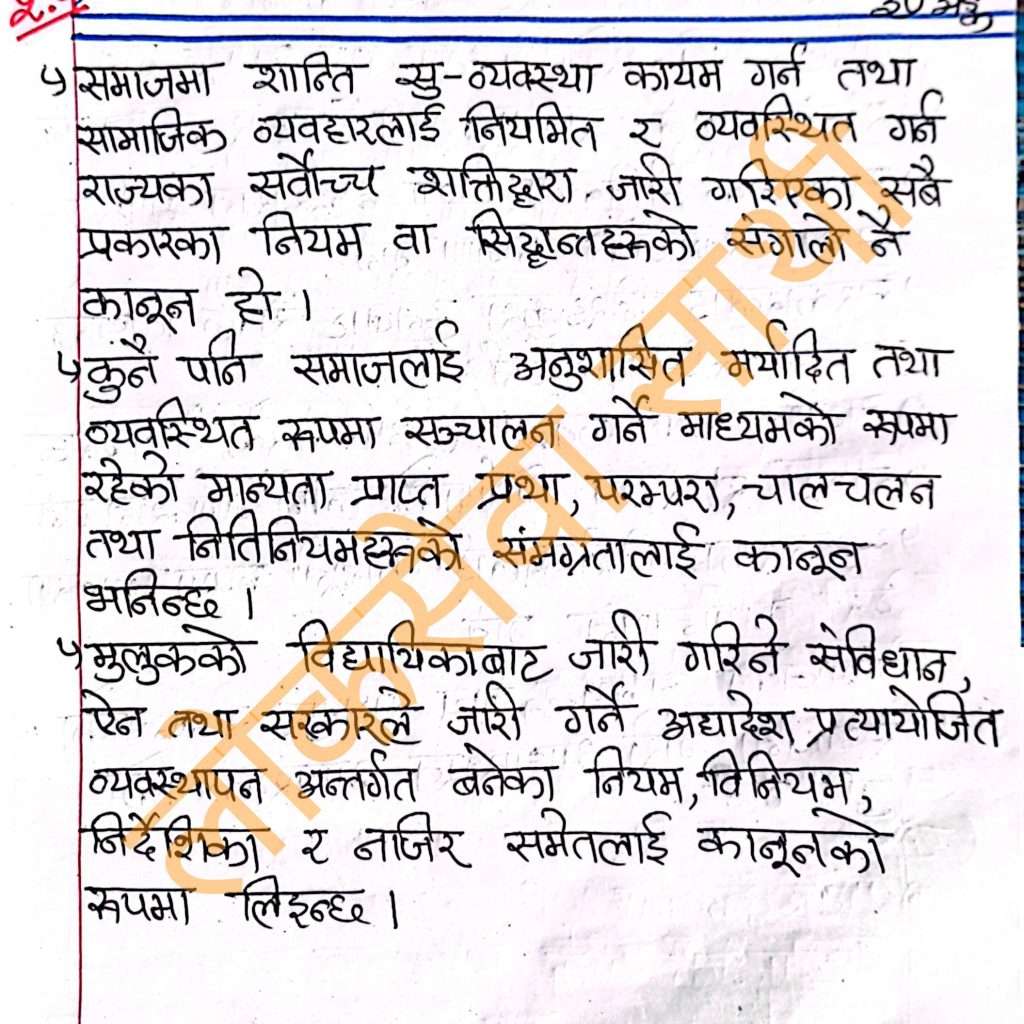 २० अङ्क
समाजमा शान्ति सु-व्यवस्था कायम गर्न तथा
सामाजिक व्यवहारलाई नियमित र व्यवस्थित गर्न
राज्यका सर्वोच्च शक्तिद्वारा जारी गरिएका सबै
प्रकारका नियम वा सिद्धान्तहरूको संगालो नै
कानून हो ।
कुनै पनि समाजलाई अनुशासित मर्यादित तथा
व्यवस्थित रूपमा सञ्चालन गर्ने माध्यमको रूपमा
रहेको मान्यता प्राप्त प्रथा, परम्परा, चालचलन
तथा नितिनियमहरूको संमग्रतालाई कानून
भनिन्छ ।
मुलुकको विद्यायिकाबाट जारी गरिने संविधान,
ऐन तथा सरकारले जारी गर्ने अद्यादेश प्रत्यायोजित
व्यवस्थापन अन्तर्गत बनेका नियम, विनियम,
निर्देशिका र नजिर समेतलाई कानूनको
रूपमा लिइन्छ ।
लोकसेवा साथी